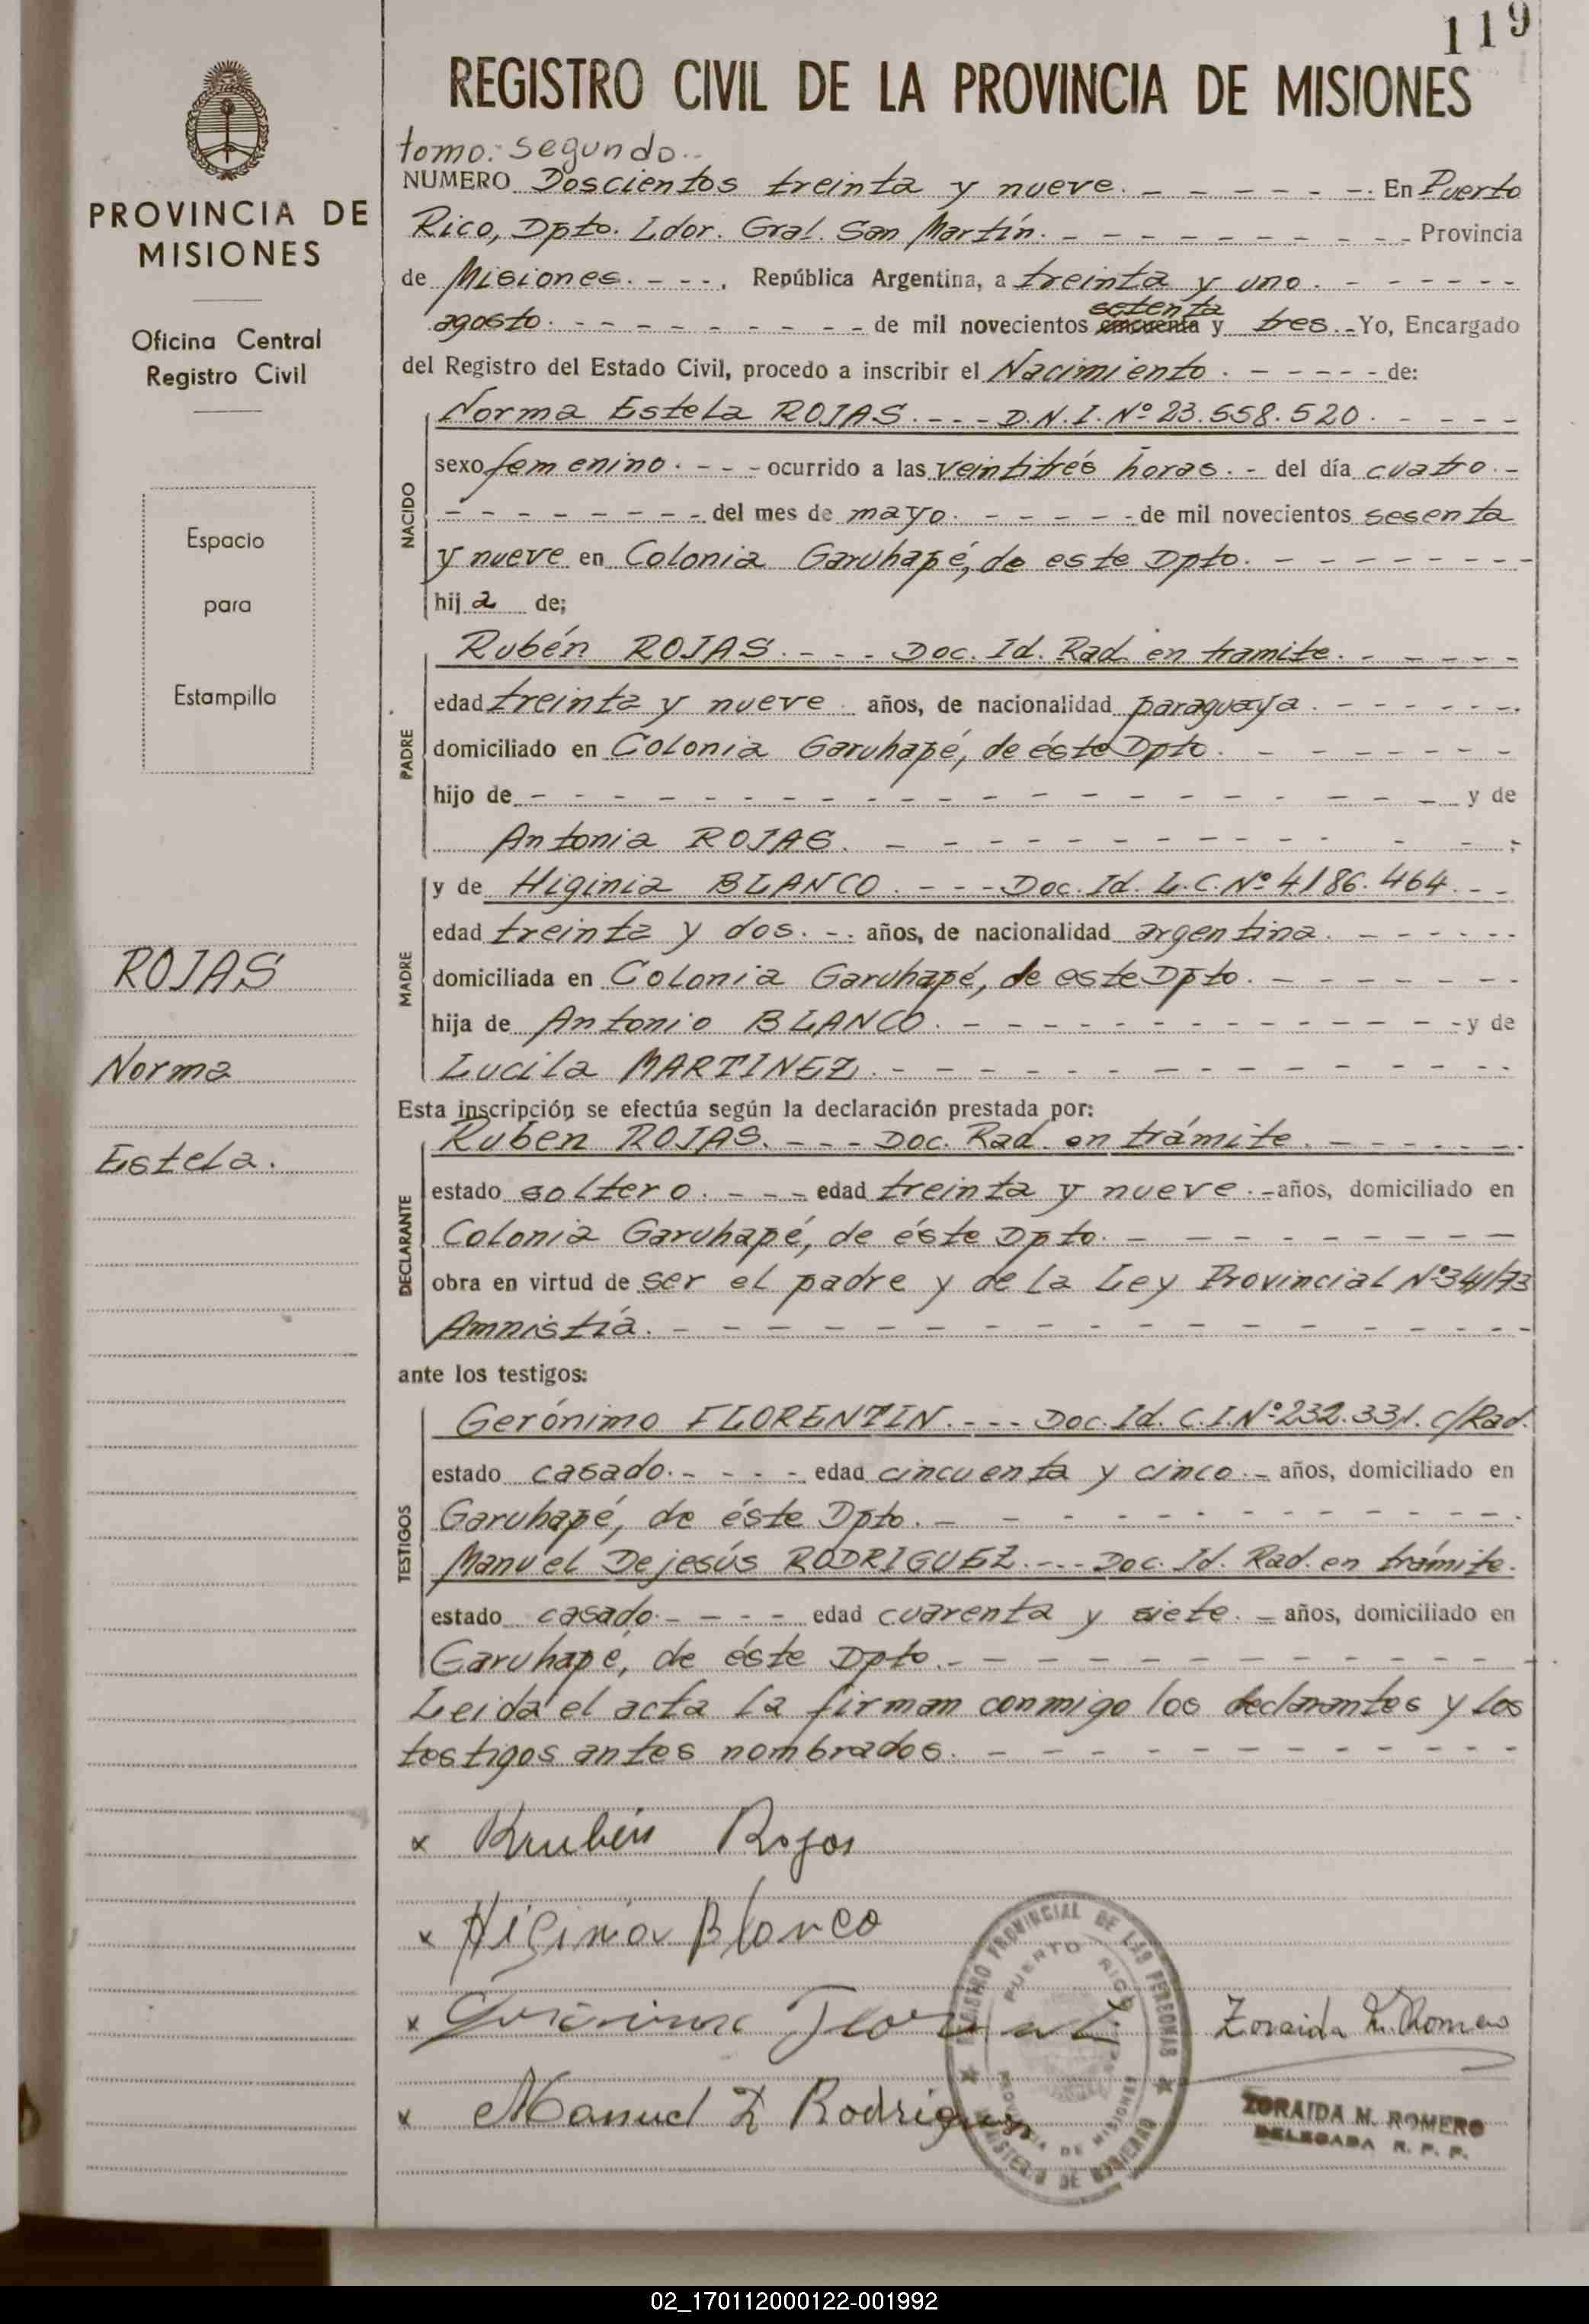 119
REGISTRO CIVIL DE LA PROVINCIA DE MISIONES
PROVINCIA DE
MISIONES
Oficina Central
Registro Civil
Espacio
para
Estampilla
ROJAS
Norma
Estela.
tomo: segundo..
NUMERO Doscientos treinta y nueve. - - - - - - En Puerto
Rico, Dpto. Ldor. Gral. San Martín. - - - - - - - - - Provincia
de Misiones. - - - . República Argentina, a treinta y uno. - - - - - -
setenta
agosto. - - - - - - - - - de mil novecientos cincuenta y tres. - Yo, Encargado
del Registro del Estado Civil, procedo a inscribir el Nacimiento. - - - - - de:
Norma Estela ROJAS. - - - D.N.I. Nº 23.558.520. - - - -
NACIDO
sexo femenino. - - - ocurrido a las veintitrés horas. - del día cuatro. -
- - - - - - - - del mes de mayo. - - - - - de mil novecientos sesenta
y nueve en Colonia Garuhapé, de este Dpto. - - - - - - - -
hija de;
Rubén ROJAS. - - - Doc. Id. Rad. en tramite. - - - - -
PADRE
edad treinta y nueve años, de nacionalidad paraguaya. - - - - - -
domiciliado en Colonia Garuhapé, de éste Dpto. - - - - - - -
hijo de - - - - - - - - - - - - - - - - - - - - y de
Antonia ROJAS. - - - - - - - - - - - - - ;
y de Higinia BLANCO. - - - Doc. Id. L.C. Nº 4186.464. - -
MADRE
edad treinta y dos. - . años, de nacionalidad argentina. - - - - - -
domiciliada en Colonia Garuhapé, de este Dpto. - - - - - - -
hija de Antonio BLANCO. - - - - - - - - - - - - - y de
Lucila MARTINEZ. - - - - - - - - - - - - - - -
Esta inscripción se efectúa según la declaración prestada por:
Rubén ROJAS. - - - Doc. Rad. en trámite. - - - - - -
DECLARANTE
estado soltero. - - - edad treinta y nueve. - años, domiciliado en
Colonia Garuhapé, de éste Dpto. - - - - - - - - -
obra en virtud de ser el padre y de la Ley Provincial Nº 341/73
Amnistía. - - - - - - - - - - - - - - - - - -
ante los testigos:
Gerónimo FLORENTIN. - - - Doc. Id. C.I. Nº 232.331. c/Rad.
TESTIGOS
estado casado. - - - - edad cincuenta y cinco. - años, domiciliado en
Garuhapé, de éste Dpto. - - - - - - - - - - - - -
Manuel Dejesús RODRIGUEZ. - - - Doc. Id. Rad. en trámite.
estado casado. - - - - edad cuarenta y siete. - años, domiciliado en
Garuhapé, de éste Dpto. - - - - - - - - - - - - -
Leida el acta la firman conmigo los declarantes y los
testigos antes nombrados. - - - - - - - - - - - -
x Krubén Rojas
x Higinia Blanco
x
Zoraida M. Romero
x Manuel D Rodriguez
REGISTRO PROVINCIAL DE LAS PERSONAS
PUERTO RICO
PROVINCIA DE MISIONES
MINISTERIO DE GOBIERNO
ZORAIDA M. ROMERO
DELEGADA R. P. P.
02_170112000122-001992